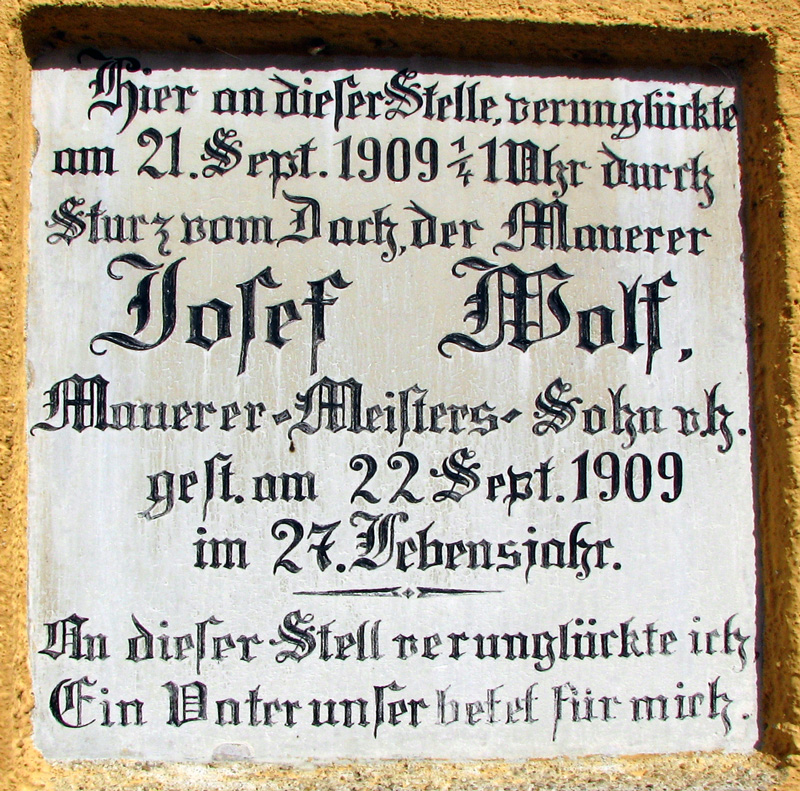 Hier an dieser Stelle, verunglückte
am 21. Sept. 1909 ¼ 1 Uhr durch
Sturz vom Dach, der Maurerer
Josef Wolf,
Mauerer-Meisters-Sohn v.h.
gest. am 22 Sept. 1909
im 27. Lebensjahr.
An dieser Stell verunglückte ich,
Ein Vater unser betet für mich.